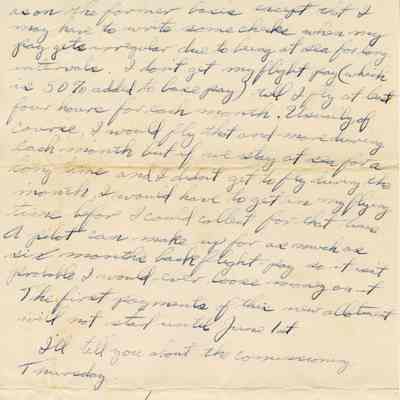 as on the former basis except that I
may have to write some checks when my
pay gets irregular due to being at sea for long
intervals. I don't get my flight pay (which
is 50% added to base pay) till I fly at least
four hours for each month. Usually of
course, I would fly that and more during
each month but if we stay at sea for a
long time and I didn't get to fly during the
month I would have to get in my flying
time befor I could collect for that time
A pilot can make up for as much as
six months back flight pay so it isn't
probable I would ever loose money on it
The first payments of this new allotment
will not start until June 1st
I'll tell you about the commissioning
Thursday.